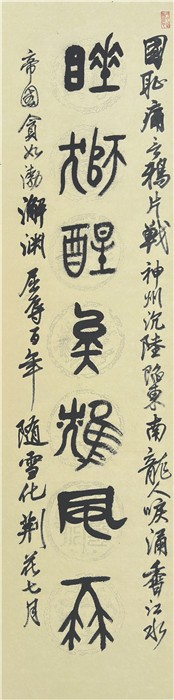 國恥痛言鴉片戰神州沉陸陷東南龍人淚涌香江水
睡獅醒矣風
帝國貪如渤澥淵屈辱百年隨雪化荊花七月